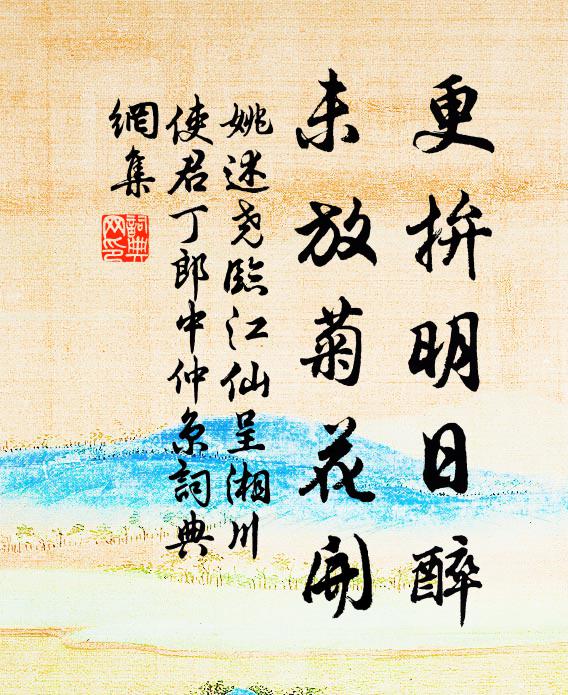 更拚明日醉
未放菊花開
姚述堯臨江仙呈湘川
使君丁郎中仲京詞典
網集
詞典網印